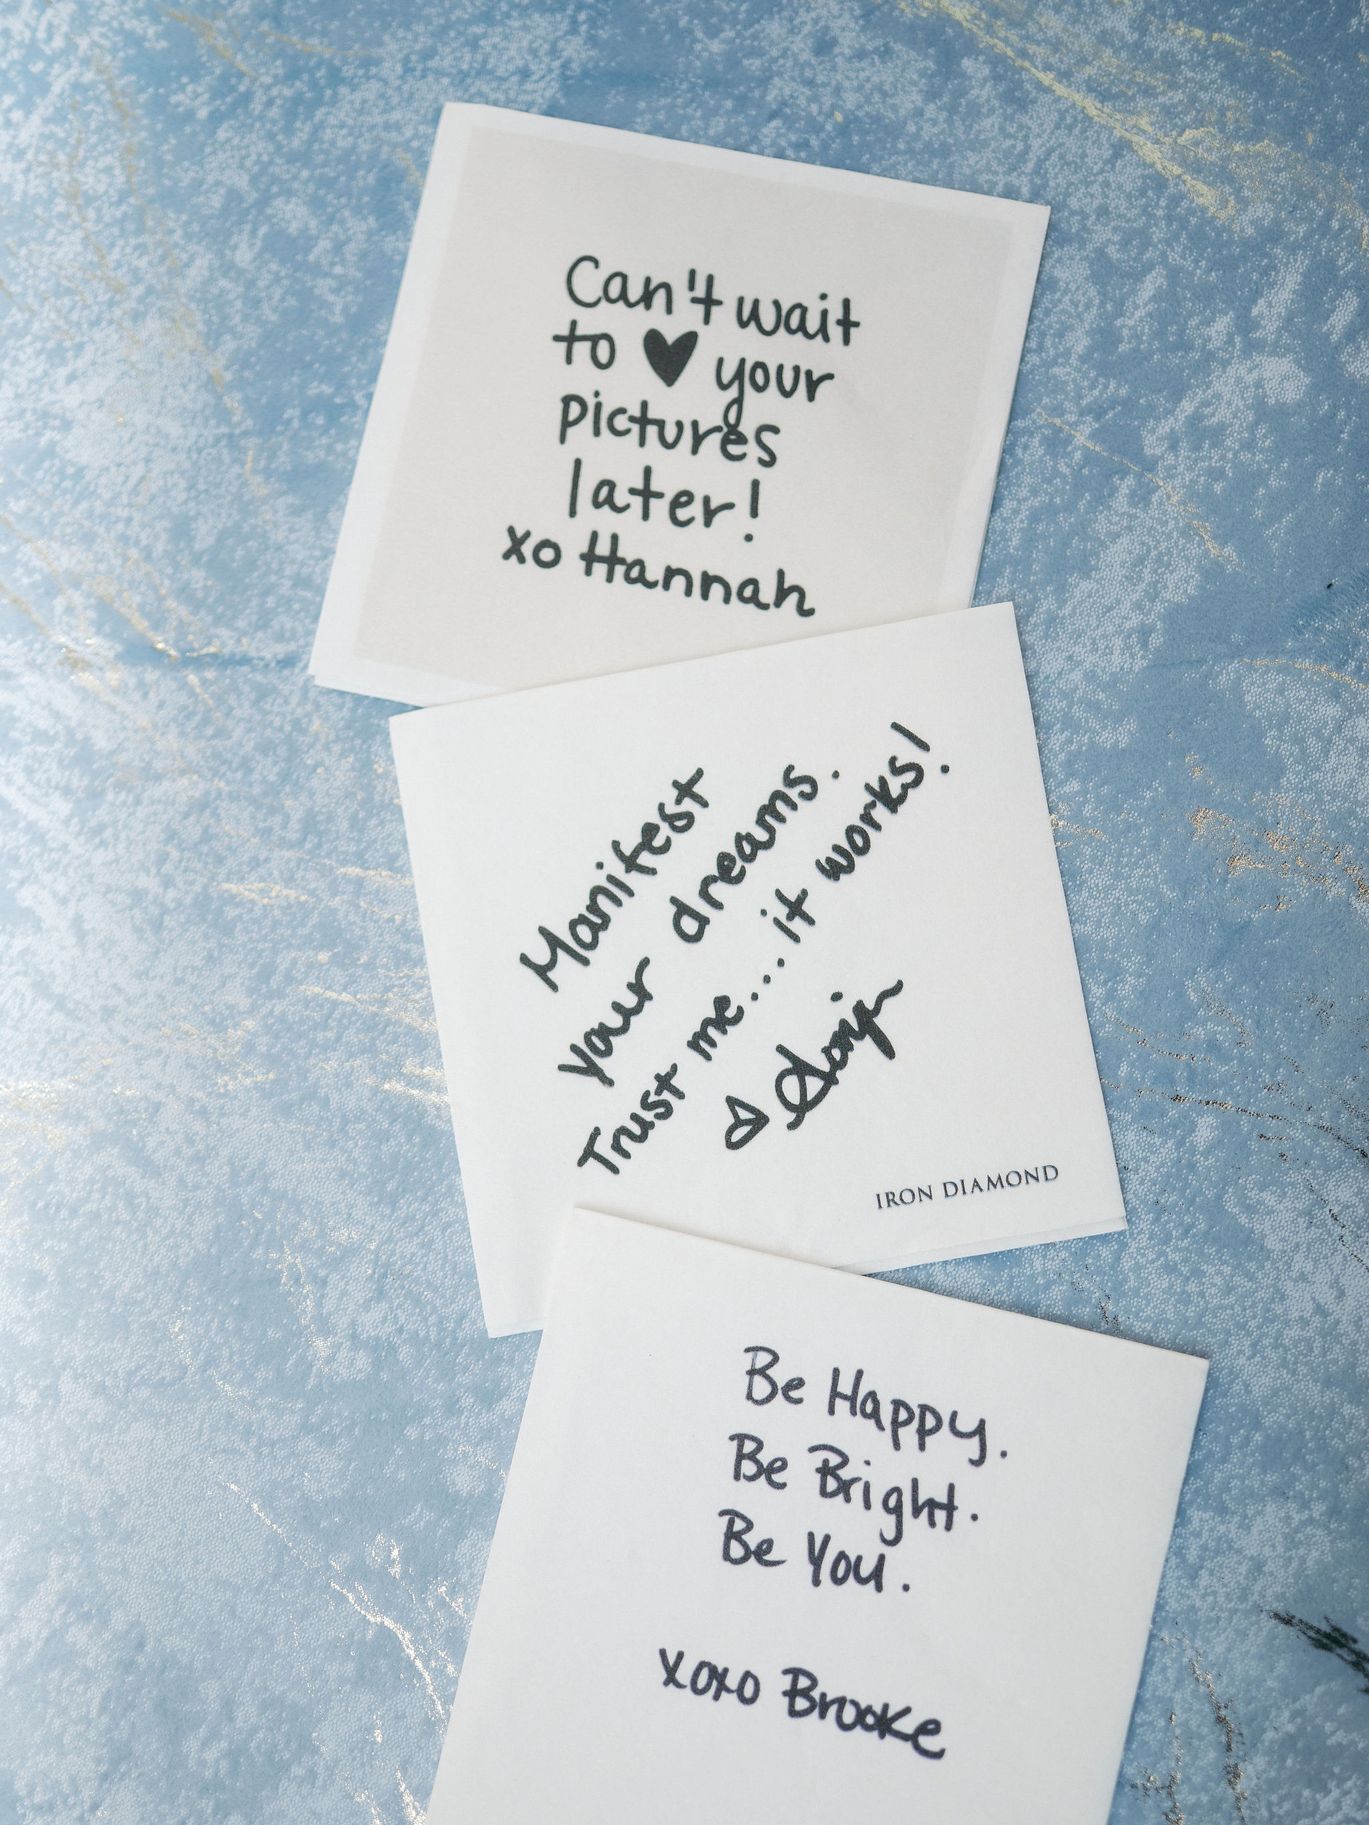 Can't wait
to ♥ your
pictures
later!
xo Hannah
Manifest
your dreams.
Trust me... it works!
IRON DIAMOND
Be Happy.
Be Bright.
Be You.
xoxo Brooke